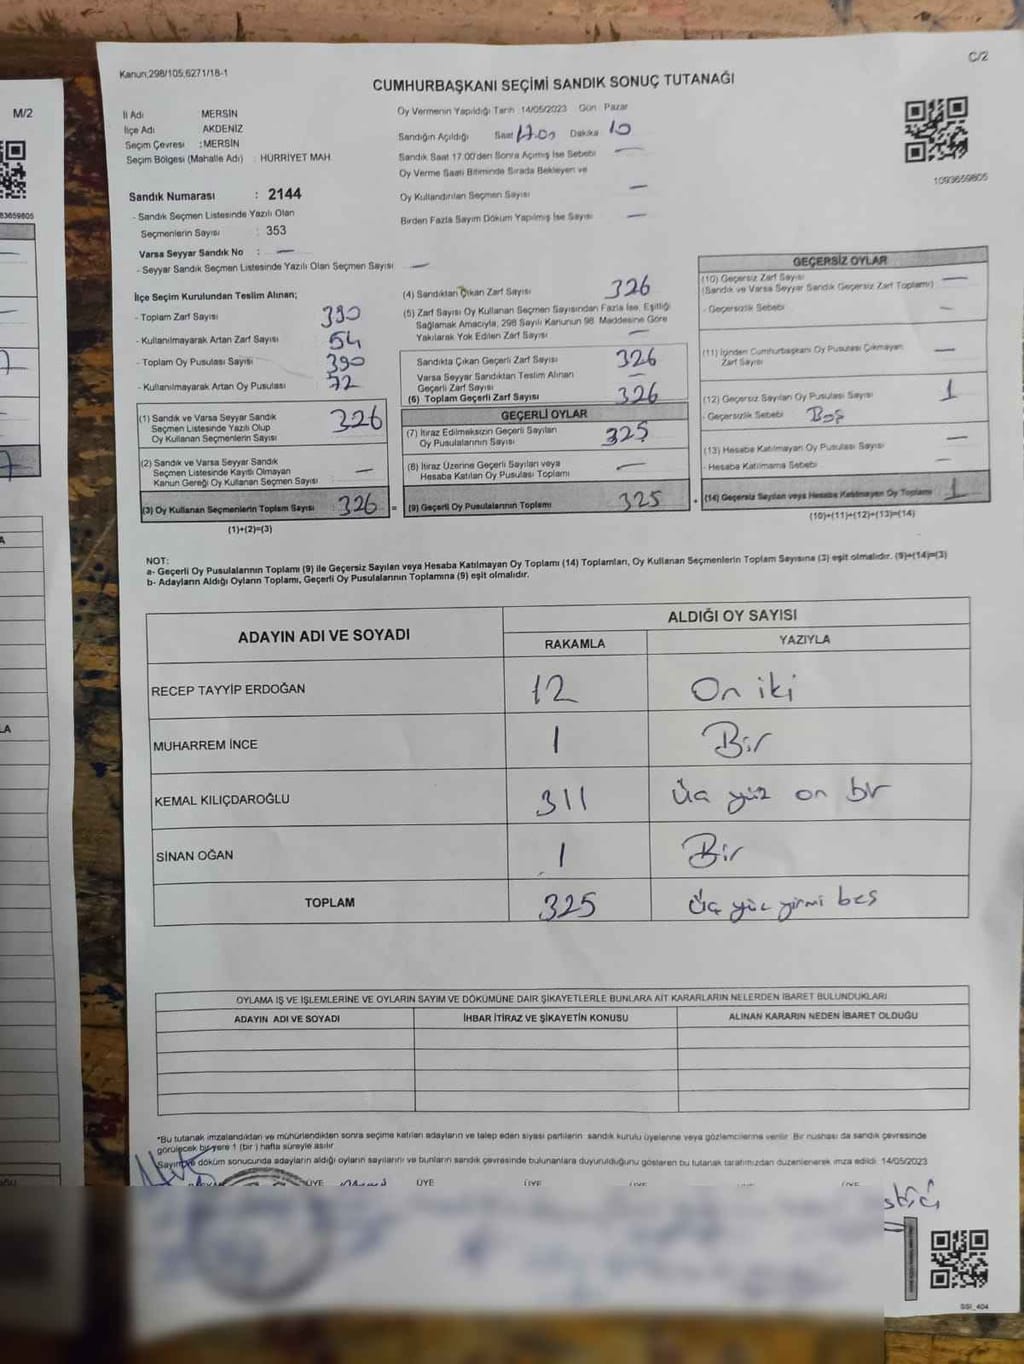 C/2
Kanun,298/105,6271/18-1
CUMHURBAŞKANI SEÇİMİ SANDIK SONUÇ TUTANAĞI
M/2
İl Adı MERSİN
İlçe Adı AKDENİZ
Seçim Çevresi :MERSİN
Seçim Bölgesi (Mahalle Adı) : HÜRRİYET MAH.
Oy Vermenin Yapıldığı Tarih 14/05/2023 Gün Pazar
Sandığın Açıldığı Saat 17.00 Dakika 10
Sandık Saat 17.00'den Sonra Açılmış İse Sebebi —
Oy Verme Saati Bitiminde Sırada Bekleyen ve
Oy Kullandırılan Seçmen Sayısı —
Birden Fazla Sayım Döküm Yapılmış İse Sayısı —
1093659805
Sandık Numarası : 2144
- Sandık Seçmen Listesinde Yazılı Olan
Seçmenlerin Sayısı : 353
Varsa Seyyar Sandık No : —
- Seyyar Sandık Seçmen Listesinde Yazılı Olan Seçmen Sayısı —
İlçe Seçim Kurulundan Teslim Alınan;
- Toplam Zarf Sayısı 390
- Kullanılmayarak Artan Zarf Sayısı 54
- Toplam Oy Pusulası Sayısı 390
- Kullanılmayarak Artan Oy Pusulası 72
(1) Sandık ve Varsa Seyyar Sandık
Seçmen Listesinde Yazılı Olup
Oy Kullanan Seçmenlerin Sayısı 326
(2) Sandık ve Varsa Seyyar Sandık
Seçmen Listesinde Kayıtlı Olmayan
Kanun Gereği Oy Kullanan Seçmen Sayısı —
(3) Oy Kullanan Seçmenlerin Toplam Sayısı 326 =
(1)+(2)=(3)
(4) Sandıktan Çıkan Zarf Sayısı 326
(5) Zarf Sayısı Oy Kullanan Seçmen Sayısından Fazla İse, Eşitliği
Sağlamak Amacıyla, 298 Sayılı Kanunun 98. Maddesine Göre
Yakılarak Yok Edilen Zarf Sayısı —
Sandıkta Çıkan Geçerli Zarf Sayısı 326
Varsa Seyyar Sandıktan Teslim Alınan
Geçerli Zarf Sayısı —
(6) Toplam Geçerli Zarf Sayısı 326
GEÇERLİ OYLAR
(7) İtiraz Edilmeksizin Geçerli Sayılan
Oy Pusulalarının Sayısı 325
(8) İtiraz Üzerine Geçerli Sayılan veya
Hesaba Katılan Oy Pusulası Toplamı —
(9) Geçerli Oy Pusulalarının Toplamı 325 +
GEÇERSİZ OYLAR
(10) Geçersiz Zarf Sayısı —
(Sandık ve Varsa Seyyar Sandık Geçersiz Zarf Toplamı)
- Geçersizlik Sebebi —
(11) İçinden Cumhurbaşkanı Oy Pusulası Çıkmayan
Zarf Sayısı —
(12) Geçersiz Sayılan Oy Pusulası Sayısı 1
- Geçersizlik Sebebi Boş
(13) Hesaba Katılmayan Oy Pusulası Sayısı —
- Hesaba Katılmama Sebebi —
(14) Geçersiz Sayılan veya Hesaba Katılmayan Oy Toplamı 1
(10)+(11)+(12)+(13)=(14)
NOT:
a- Geçerli Oy Pusulalarının Toplamı (9) ile Geçersiz Sayılan veya Hesaba Katılmayan Oy Toplamı (14) Toplamları, Oy Kullanan Seçmenlerin Toplam Sayısına (3) eşit olmalıdır. (9)+(14)=(3)
b- Adayların Aldığı Oyların Toplamı, Geçerli Oy Pusulalarının Toplamına (9) eşit olmalıdır.
ADAYIN ADI VE SOYADI
ALDIĞI OY SAYISI
RAKAMLA YAZIYLA
RECEP TAYYİP ERDOĞAN 12 On iki
MUHARREM İNCE 1 Bir
KEMAL KILIÇDAROĞLU 311 Üç yüz on bir
SİNAN OĞAN 1 Bir
TOPLAM 325 Üç yüz yirmi beş
OYLAMA İŞ VE İŞLEMLERİNE VE OYLARIN SAYIM VE DÖKÜMÜNE DAİR ŞİKAYETLERLE BUNLARA AİT KARARLARIN NELERDEN İBARET BULUNDUKLARI
ADAYIN ADI VE SOYADI İHBAR İTİRAZ VE ŞİKAYETİN KONUSU ALINAN KARARIN NEDEN İBARET OLDUĞU
*Bu tutanak imzalandıktan ve mühürlendikten sonra seçime katılan adayların ve talep eden siyasi partilerin sandık kurulu üyelerine veya gözlemcilerine verilir. Bir nüshası da sandık çevresinde
görülecek bir yere 1 (bir) hafta süreyle asılır.
Sayım ve döküm sonucunda adayların aldığı oyların sayılarını ve bunların sandık çevresinde bulunanlara duyurulduğunu gösteren bu tutanak tarafımızdan düzenlenerek imza edildi. 14/05/2023
ÜYE ÜYE ÜYE ÜYE
SSİ_404